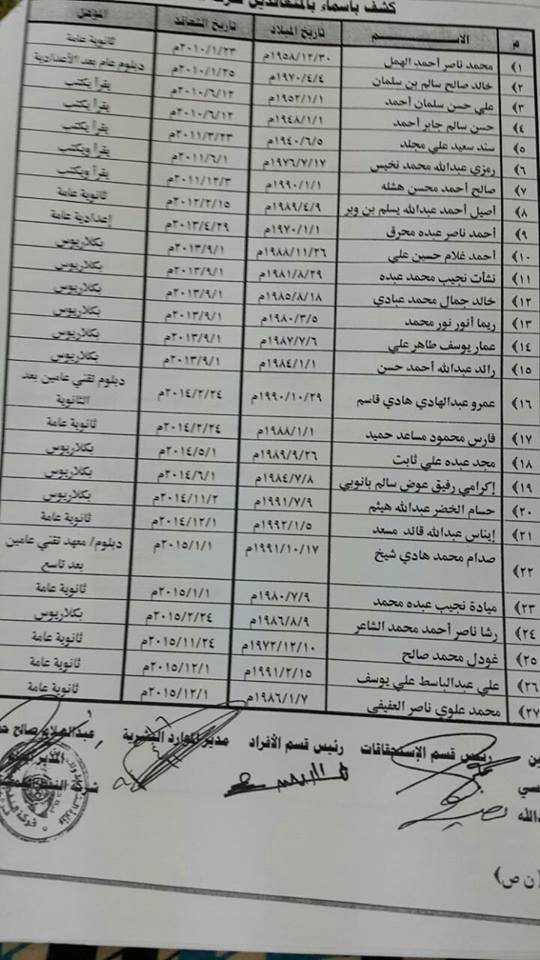 كشف بأسماء بالمتعاقدين
م الاســـــم تاريخ الميلاد تاريخ التعاقد المؤهل
١) محمد ناصر أحمد الهمل ١٩٥٨/١٢/٣٠م ٢٠١٠/١/٢٣م ثانوية عامة
٢) خالد صالح سالم بن سلمان ١٩٧٠/٤/٤م ٢٠١٠/١/٢٥م دبلوم عام بعد الأعدادية
٣) علي حسن سلمان احمد ١٩٥٢/١/١م ٢٠١٠/٦/١٢م يقرأ يكتب
٤) حسن سالم جابر أحمد ١٩٤٨/١/١م ٢٠١٠/٦/١٢م يقرأ يكتب
٥) سند سعيد علي مجلد ١٩٤٠/٦/٥م ٢٠١١/٣/٢٣م يقرأ يكتب
٦) رمزي عبدالله محمد نخيس ١٩٧٦/٧/١٧م ٢٠١١/٦/١م يقرأ ويكتب
٧) صالح أحمد محسن هشله ١٩٩٠/١/١م ٢٠١١/١٢/٣م يقرأ ويكتب
٨) أصيل أحمد عبدالله يسلم بن وبر ١٩٨٩/٤/٩م ٢٠١٢/٢/١٥م ثانوية عامة
٩) أحمد ناصر عبده محرق ١٩٧٠/١/١م ٢٠١٣/٤/٢٩م إعدادية عامة
١٠) أحمد غلام حسين علي ١٩٨٨/١١/٢٦م ٢٠١٣/٩/١م بكلاريوس
١١) نشأت نجيب محمد عبده ١٩٨١/٨/٢٩م ٢٠١٣/٩/١م بكلاريوس
١٢) خالد جمال محمد عبادي ١٩٨٥/٨/١٨م ٢٠١٣/٩/١م بكلاريوس
١٣) ريما أنور نور محمد ١٩٨٠/٣/٥م ٢٠١٣/٩/١م بكلاريوس
١٤) عمار يوسف طاهر علي ١٩٨٧/٧/٦م ٢٠١٣/٩/١م بكلاريوس
١٥) رائد عبدالله أحمد حسن ١٩٨٤/١/١م ٢٠١٣/٩/١م بكلاريوس
١٦) عمرو عبدالهادي هادي قاسم ١٩٩٠/١٠/٢٩م ٢٠١٤/٢/٢٤م دبلوم تقني عامين بعد
الثانوية
١٧) فارس محمود مساعد حميد ١٩٨٨/١/١م ٢٠١٤/٢/٢٤م ثانوية عامة
١٨) مجد عبده علي ثابت ١٩٨٩/٩/٢٦م ٢٠١٤/٥/١م بكلاريوس
١٩) إكرامي رفيق عوض سالم بانوبي ١٩٨٤/٧/٨م ٢٠١٤/٦/١م بكلاريوس
٢٠) حسام الخضر عبدالله هيثم ١٩٩١/٧/٩م ٢٠١٤/١١/٢م بكلاريوس
٢١) إيناس عبدالله قائد مسعد ١٩٩٢/١/٥م ٢٠١٤/١٢/١م ثانوية عامة
٢٢) صدام محمد هادي شيخ ١٩٩١/١٠/١٧م ٢٠١٥/١/١م دبلوم/ معهد تقني عامين
بعد تاسع
٢٣) ميادة نجيب عبده محمد ١٩٨٠/٧/٩م ٢٠١٥/١/١م ثانوية عامة
٢٤) رشا ناصر أحمد محمد الشاعر ١٩٨٦/٨/٩م ٢٠١٥/٢/٢٤م بكلاريوس
٢٥) غودل محمد صالح ١٩٧٢/١٢/١٠م ٢٠١٥/١١/٢٤م ثانوية عامة
٢٦) علي عبدالباسط علي يوسف ١٩٩١/٢/١٥م ٢٠١٥/١٢/١م ثانوية عامة
٢٧) محمد علوي ناصر العفيفي ١٩٨٦/١/٧م ٢٠١٥/١٢/١م ثانوية عامة
رئيس قسم الإستحقاقات رئيس قسم الأفراد مدير الموارد البشرية صالح
شركة النفط
(ن ص)